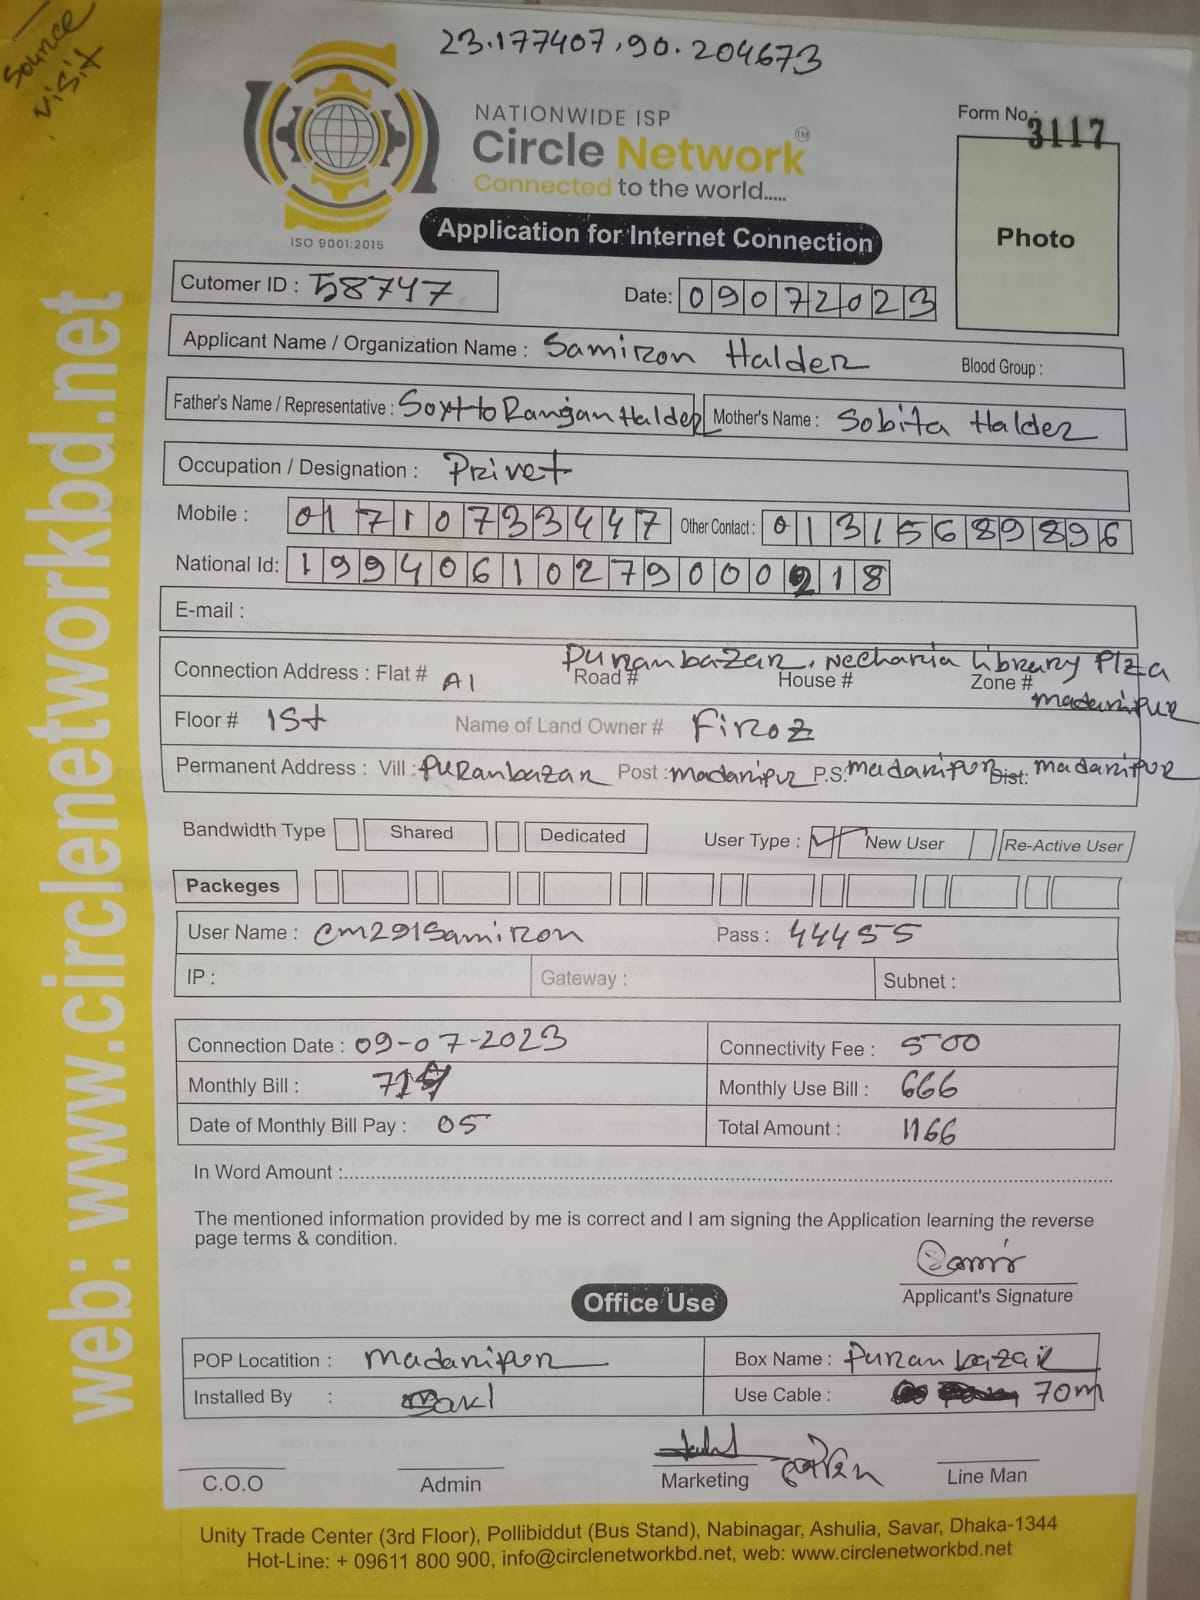 source
visit
23.177407,90.204673
NATIONWIDE ISP
Circle Network TM
Connected to the world.....
ISO 9001:2015
Form No.: 3117
Photo
Application for Internet Connection
Cutomer ID : 58747
Date: 09072023
Applicant Name / Organization Name : Samiron Halder Blood Group :
Father's Name / Representative : Soxtto Rangan Halder Mother's Name : Sobita Halder
Occupation / Designation : Privet
Mobile : 01710733447 Other Contact : 01315689896
National Id: 19940610279000218
E-mail :
Puranbazar, Necharia Library Plza
Connection Address : Flat # A1 Road # House # Zone #
Madaripur
Floor # 1St Name of Land Owner # Firoz
Permanent Address : Vill : Puranbazar Post : Madaripur P.S. Madaripur Dist: Madaripur
Bandwidth Type Shared Dedicated User Type : New User Re-Active User
Packeges
User Name : cm291Samiron Pass : 44455
IP : Gateway : Subnet :
Connection Date : 09-07-2023 Connectivity Fee : 500
Monthly Bill : Monthly Use Bill : 666
Date of Monthly Bill Pay : 05 Total Amount : 1166
In Word Amount :
The mentioned information provided by me is correct and I am signing the Application learning the reverse
page terms & condition.
Applicant's Signature
Office Use
POP Locatition : Madaripur Box Name : Puran bazar
Installed By : Use Cable : 70m
C.O.O Admin Marketing Line Man
Unity Trade Center (3rd Floor), Pollibiddut (Bus Stand), Nabinagar, Ashulia, Savar, Dhaka-1344
Hot-Line: + 09611 800 900, info@circlenetworkbd.net, web: www.circlenetworkbd.net
web: www.circlenetworkbd.net